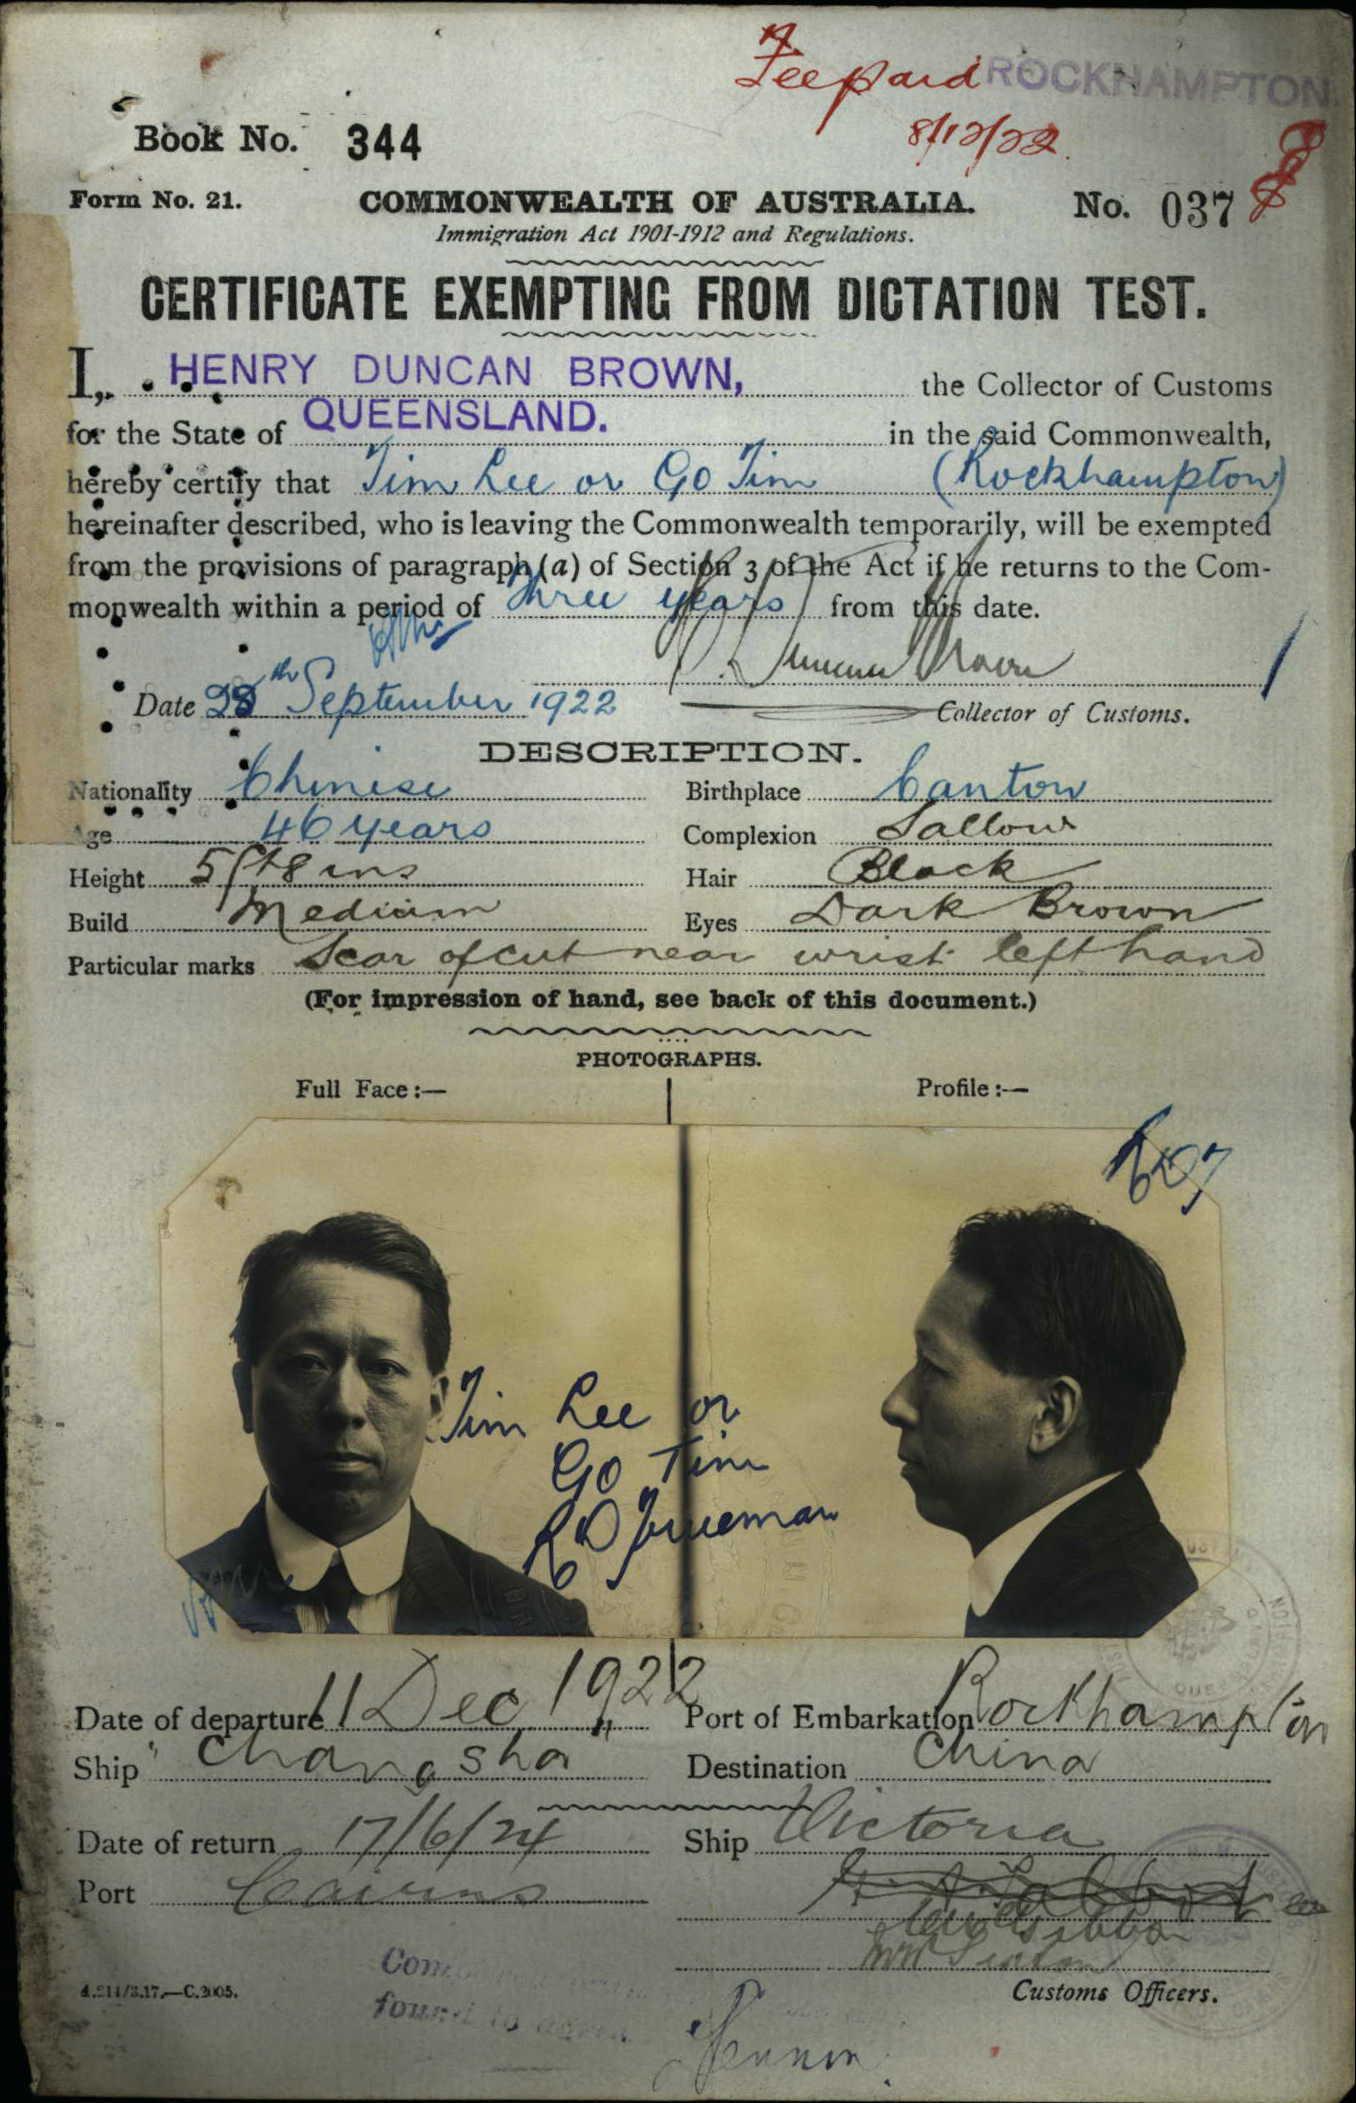 Fee paid ROCKHAMPTON.
8/12/22.
Book No. 344
Form No. 21. COMMONWEALTH OF AUSTRALIA. No. 037
Immigration Act 1901-1912 and Regulations.
CERTIFICATE EXEMPTING FROM DICTATION TEST.
I, HENRY DUNCAN BROWN, the Collector of Customs
for the State of QUEENSLAND. in the said Commonwealth,
hereby certify that Tim Lee or Go Tim (Rockhampton)
hereinafter described, who is leaving the Commonwealth temporarily, will be exempted
from the provisions of paragraph (a) of Section 3 of the Act if he returns to the Com-
monwealth within a period of Three years from this date.
H. Duncan Brown
Date 28th September 1922 Collector of Customs.
DESCRIPTION.
Nationality Chinese Birthplace Canton
Age 46 years Complexion Sallow
Height 5 ft 8 ins Hair Black
Build Medium Eyes Dark Brown
Particular marks Scar of cut near wrist left hand
(For impression of hand, see back of this document.)
PHOTOGRAPHS.
Full Face:— Profile:—
607
Tim Lee or
Go Tim
R D Trueman
Date of departure 11 Dec 1922 Port of Embarkation Rockhampton
Ship "Changsha" Destination China
Date of return 17/6/24 Ship Victoria
Port Cairns
Customs Officers.
found to agree